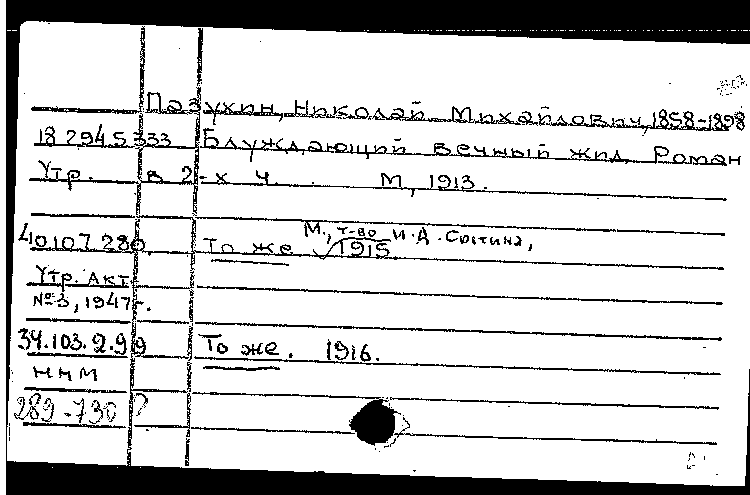 Пазухин, Николай Михайлович, 1858-1898
18.294.5.333 Блуждающий вечный жид. Роман
Утр. в 2-х ч. М., 1913.
М., т-во И.Д. Сытина,
40.107.280. То же 1915.
Утр. Акт
№ 3, 1947 г.
34.103.2.99 То же. 1916.
ННМ
289-730